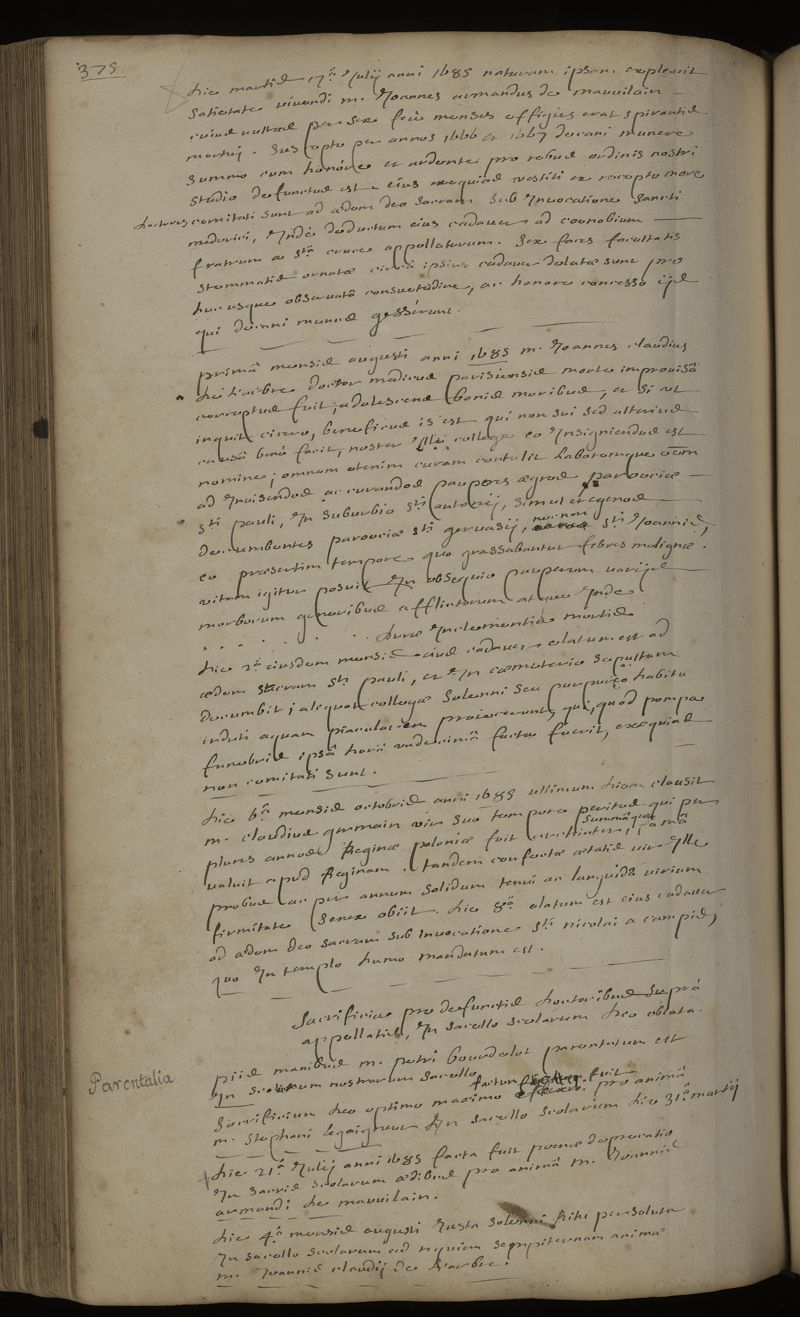 375
die martis 17ᵃ Julij anni 1685 naturam ipsam explevit
satietate vivendi m. Joannes armandus de mauvilain
cuius vultus per sex fere menses effigies erat spirantis
mortis. suscepto per annos 1666 et 1667 decani munere
summo cum honore et ardente pro rebus ordinis nostri
studio defunctus est. eius exequias vestiti ex recepto more
doctores comitati sunt ad ædem deo sacram sub Invocatione sancti
mederici, Inde deductum eius cadaver ad coenobium
fratrum a stâ cruce appellatorum. sex faces facultatis
stemmatis ornatæ circà ipsius cadaver delatæ sunt pro
hucusque observatâ consuetudine, ac honore concesso ijs
qui decani munus gesserunt.
primâ mensis augusti anni 1685 m. Joannes claudius
de doctor medicus parisiensis morte improvisâ
correptus fuit, adolescens bonis moribus, et si ut
inquit cicero, beneficus is est qui non sui sed alterius
causâ benè facit, noster Ille collega eo Insigniendus est
nomine; omnem etenim curam contulit laboremque
ad Invisendos ac curandos pauperes ægros parociæ
sti pauli, In suburbio sti antonij, simul et egenos
decumbentes parociæ sti gervasij, necnon sti Joannis,
eo præsertim tempore quo grassabantur febres malignæ.
vitam igitur posuit In obsequio pauperum varijs
morborum generibus afflictorum atque Inde
. . . . . . . . duræ Inclementia mortis
die 2ᵃ eiusdem mensis eius cadaver elatum est ad
ædem sacram sti pauli, et In cæmeterio sepultum
decumbit; aliquot collegæ solenni seu purpureo habitu
induti aquam piacularem proiecerunt, qui, quod pompa
funebris ipsâ horâ undecimâ facta fuerit, exequias
non comitati sunt.
die 6ᵃ mensis octobris anni 1685 ultimum diem clausit
m. claudius germain vir suo tempore peritus qui per
plures annos Reginæ poloniæ fuit archiater, summâque famâ
valuit apud Reginam. tandem confectæ ætatis vir Ille
probus ac per annum solidum tenui ac languidâ virium
firmitate senex obiit. die 8ᵃ elatum est eius cadaver
ad ædem deo sacram sub Invocatione sti nicolai a campis,
quo In templo humo mandatum est.
Sacrificia pro defunctis doctoribus suprà
appellatis, In sacello scolarum deo oblata.
Parentalia
piis manibus m. petri bourdelot parentatum est
In scolarum nostrarum sacello
Sacrificium deo optimo maximo factum fuit pro animâ
m. stephani legaigneur In sacello scolarum die 31ᵃ martij
die 21ᵃ Julij anni 1685 facta fuit poenæ deprecatio
In sacris scolarum ædibus pro animâ m. Joannis
armandi de mauvilain.
die 4ᵃ mensis augusti Iusta solenni Ritu persoluta
In sacello scolarum ad requiem sempiternam animæ
m. Joannis claudij de